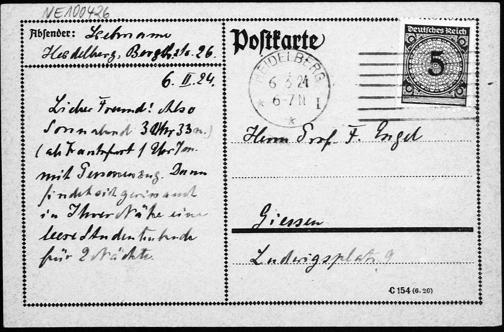 NE100426
Absender: Lehmann
Heidelberg, Bergstr. 26
6. II. 24.
Lieber Freund! Also
Sonnabend 3 Uhr 33 n.)
(ab Frankfurt 1 Uhr 7 n.
mit Personenzug. Dann
findet sich
in Ihrer Nähe eine
leere Studentenbude
für 2 Nächte.
Postkarte
Deutsches Reich
5
HEIDELBERG
6 24
6-7 N
I
Herrn Prof. F. Engel
Giessen
Ludwigsplatz 9
C 154 (6. 20)